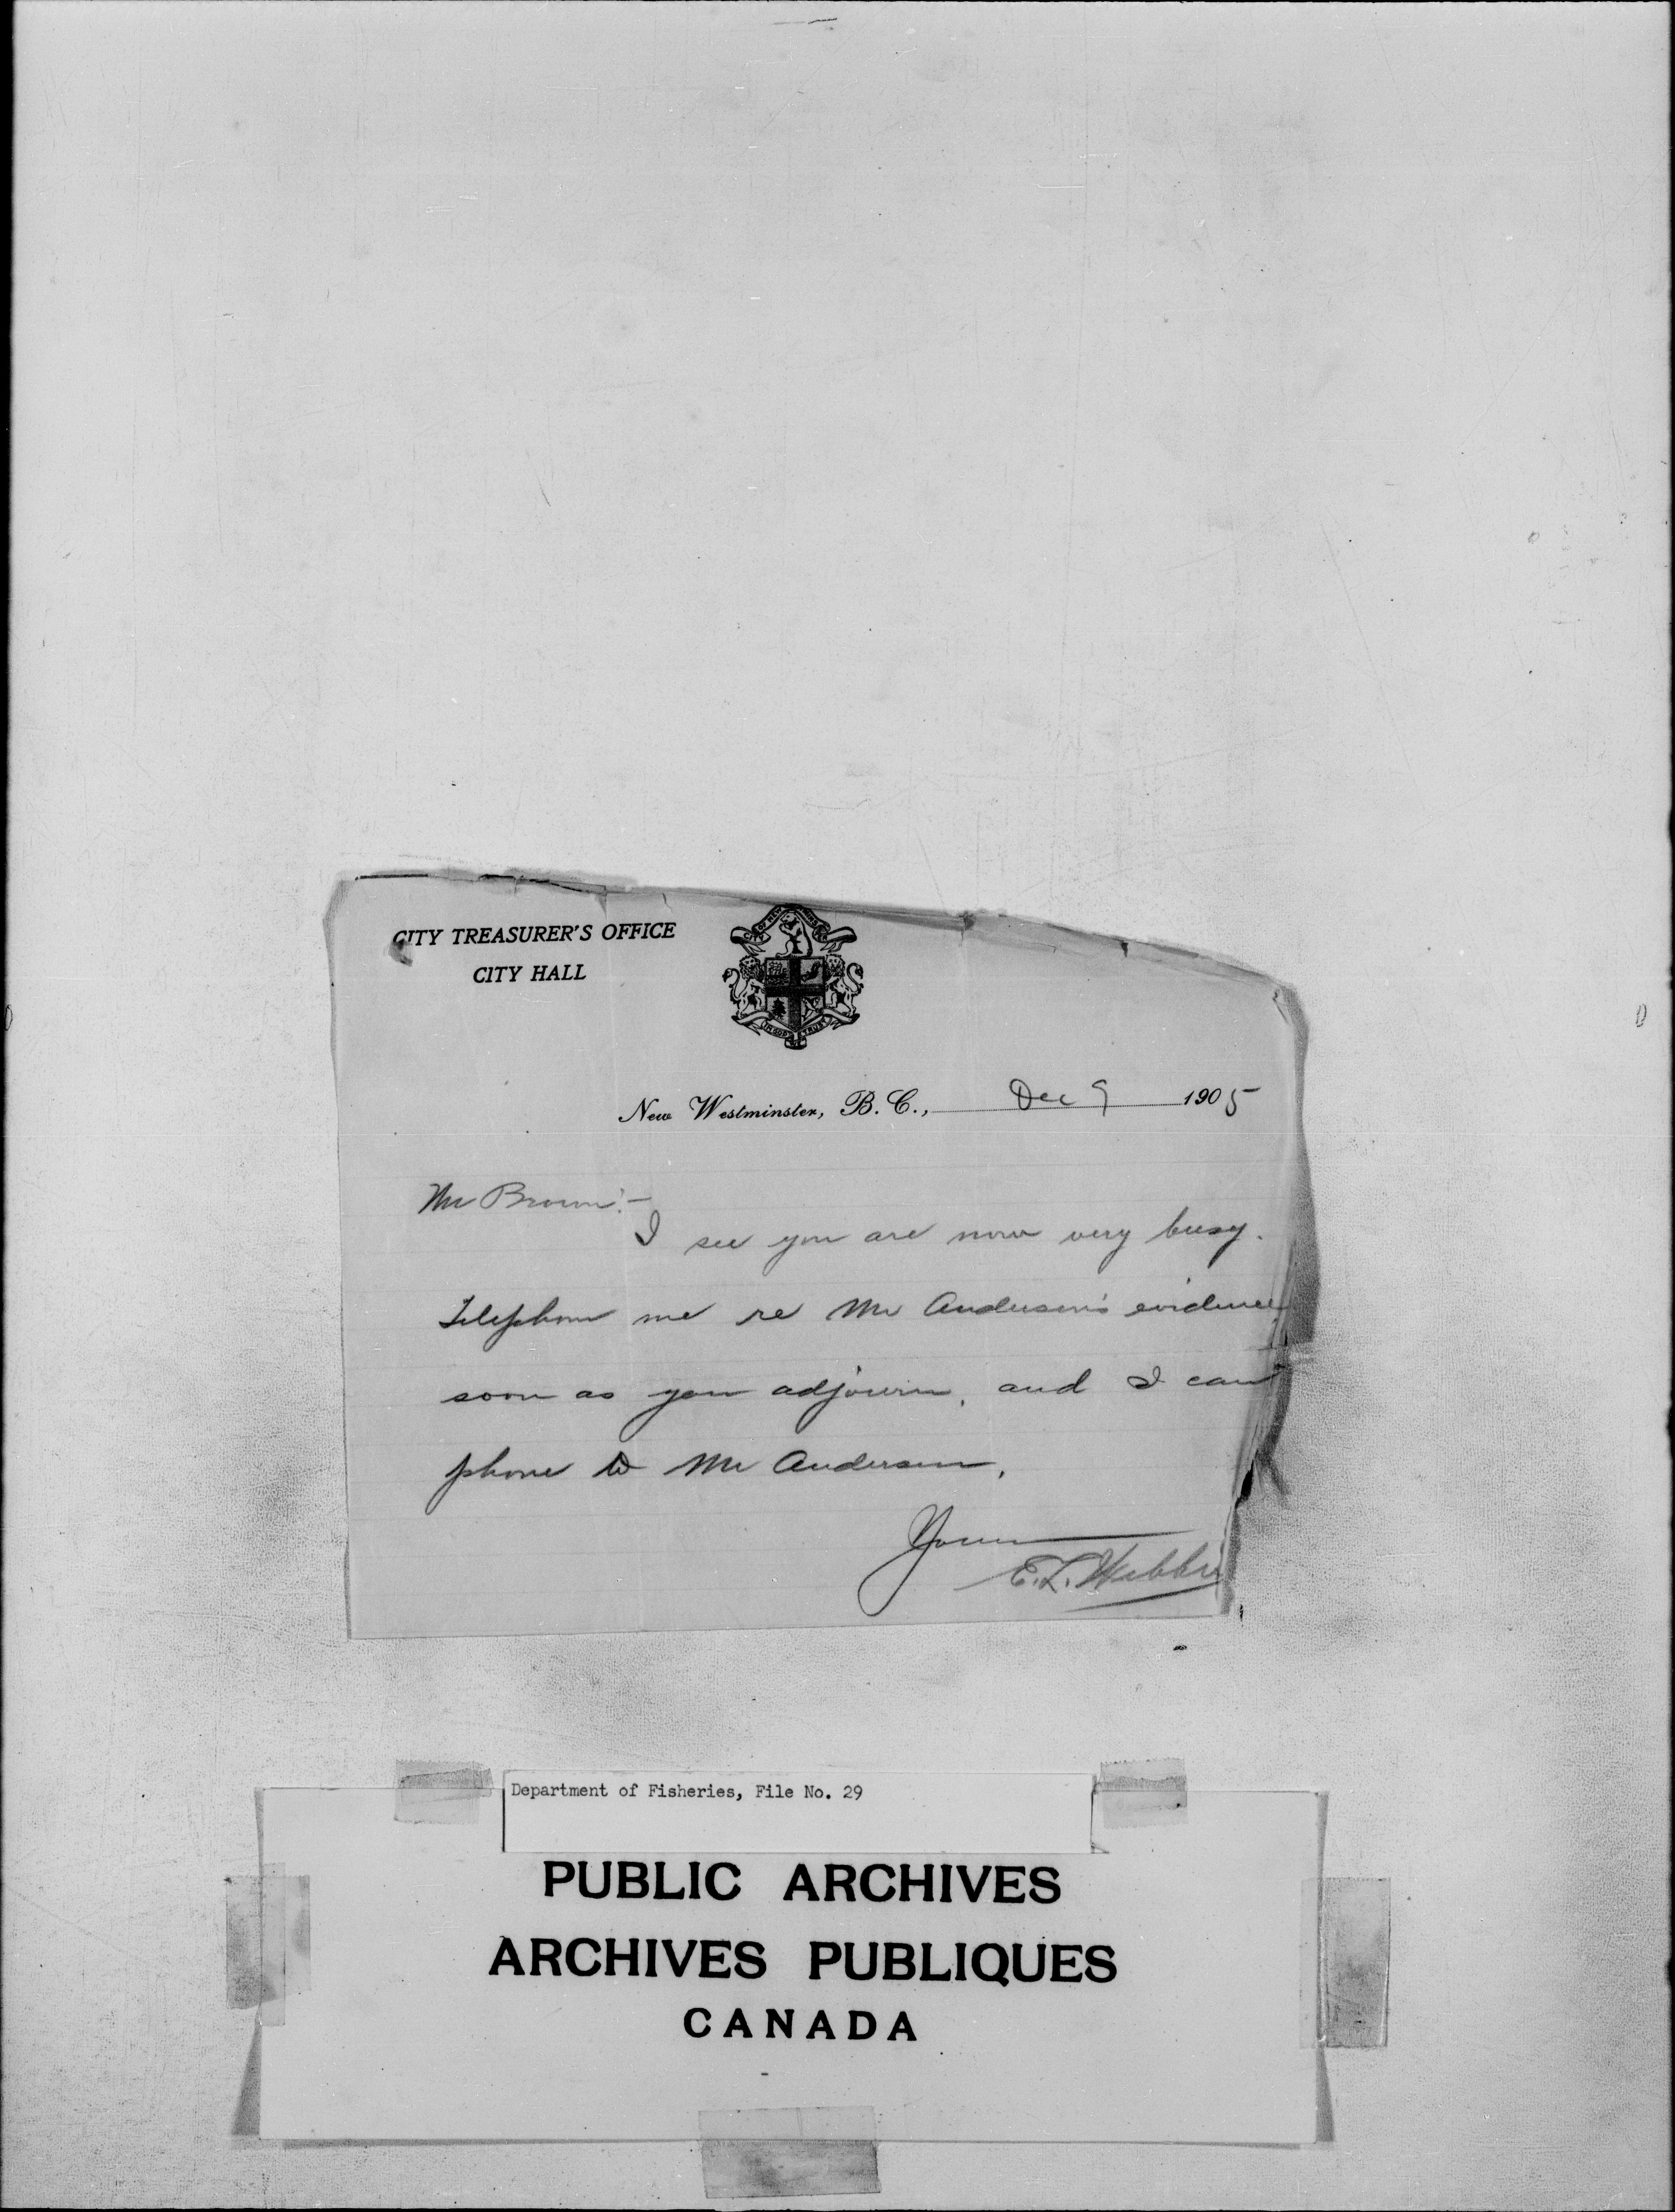 CITY TREASURER'S OFFICE
CITY HALL
IN GOD WE TRUST
New Westminster, B. C., Dec 9 1905
Mr Brown:-
I see you are now very busy.
Telephone me re Mr Anderson's evidence,
soon as you adjourn, and I can
phone to Mr Anderson.
Yours
E.L. Webber
Department of Fisheries, File No. 29
PUBLIC ARCHIVES
ARCHIVES PUBLIQUES
CANADA